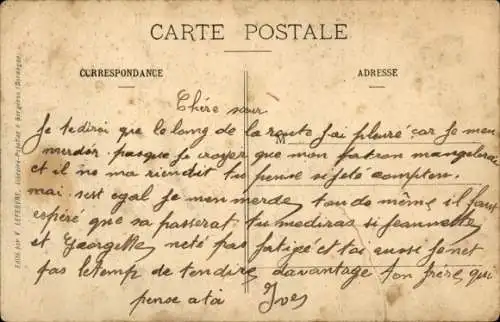 CARTE POSTALE
CORRESPONDANCE
ADRESSE
Chère sœur
Je te dirai que le long de la route j'ai pleuré car je men
murdér pasque je croyer que mon patron mangelerai
et il no ma riendit tu pense si jeté compton.
mai sest egal je men merde, tou de même il faus
espéré que sa passerat tu mediras si jeannette
et Georgette, neté pas fatigé et toi aussi je net
pas letemp de tendire davantage ton frère qui
pense a toi Yves